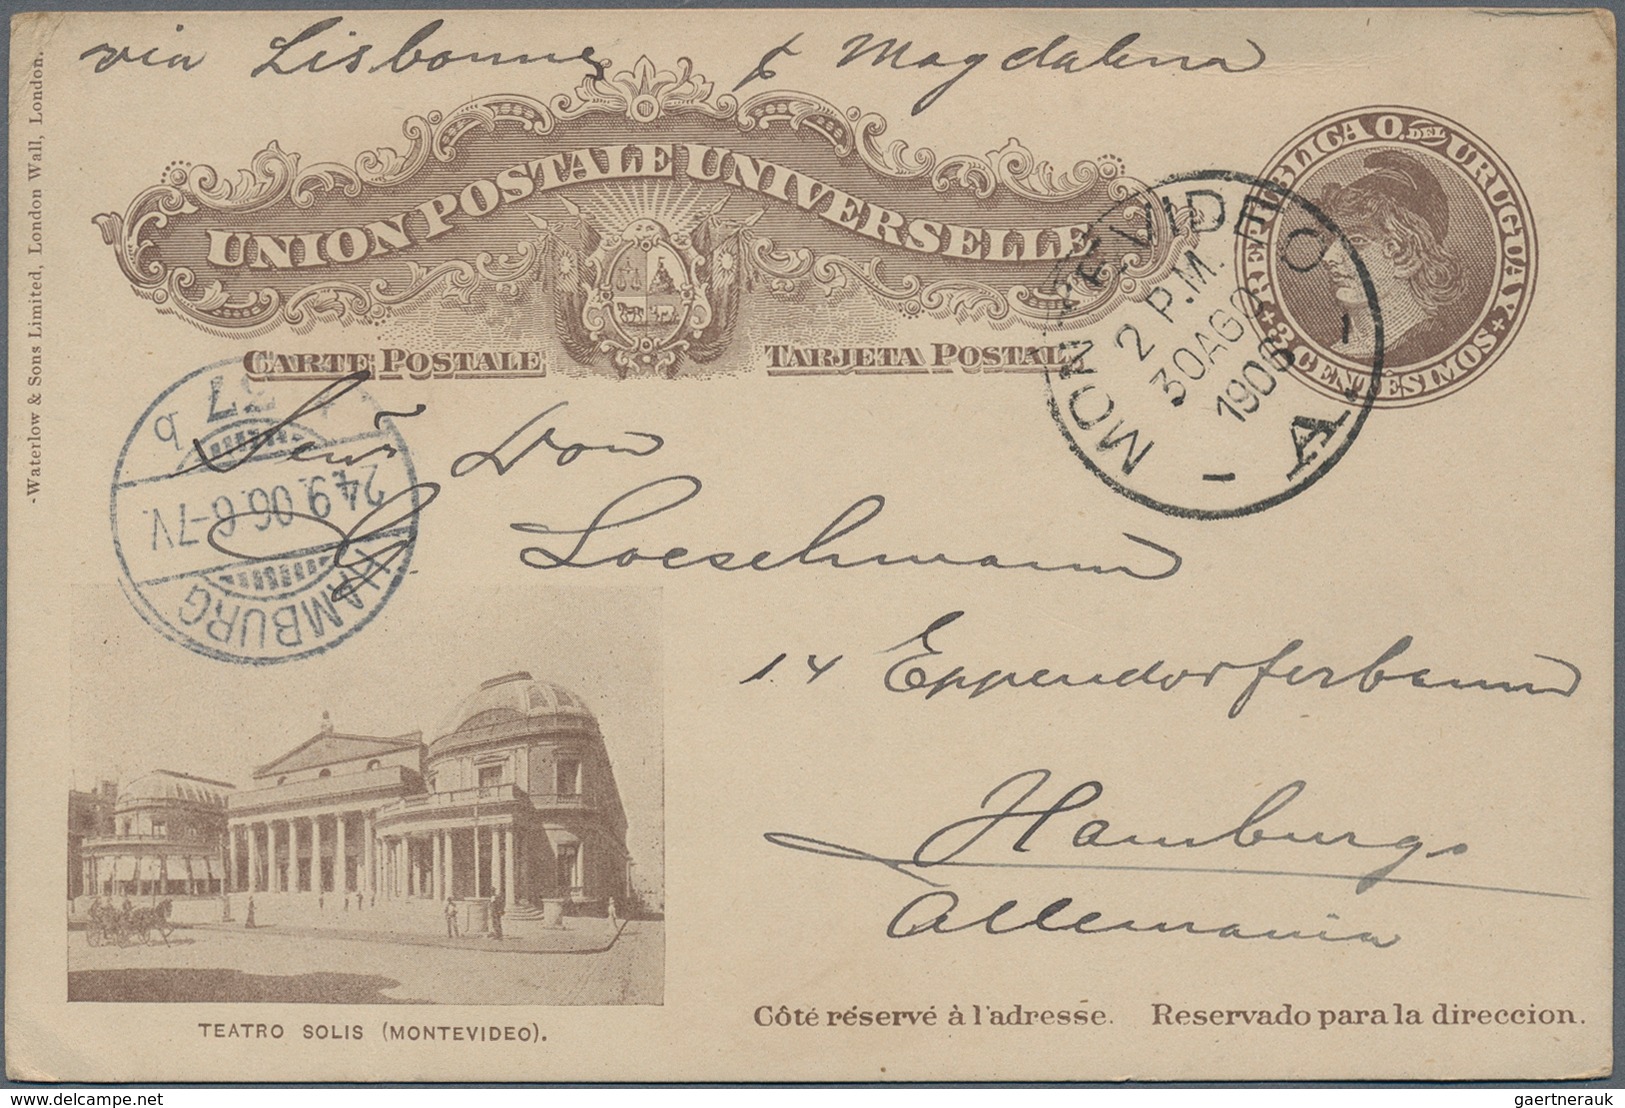 via Lisbonne p Magdalena
UNION POSTALE UNIVERSELLE
CARTE POSTALE TARJETA POSTAL
REPUBLICA O. DEL URUGUAY
3 CENTÉSIMOS
MONTEVIDEO
2 P.M.
30 AGO
1906
A
37 b
24.9.06.6-7V.
HAMBURG
Señor Don
Loeschmann
14 Eppendorferbaum
Hamburgo
Allemania
TEATRO SOLIS (MONTEVIDEO).
Côté réservé à l'adresse. Reservado para la direccion.
-Waterlow & Sons Limited, London Wall, London.
delcampe.net
gaertnerauk